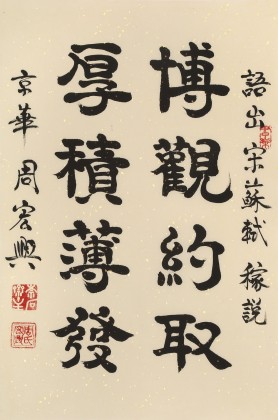 語出宋蘇軾稼説
博觀約取
厚積薄發
京華周宏興